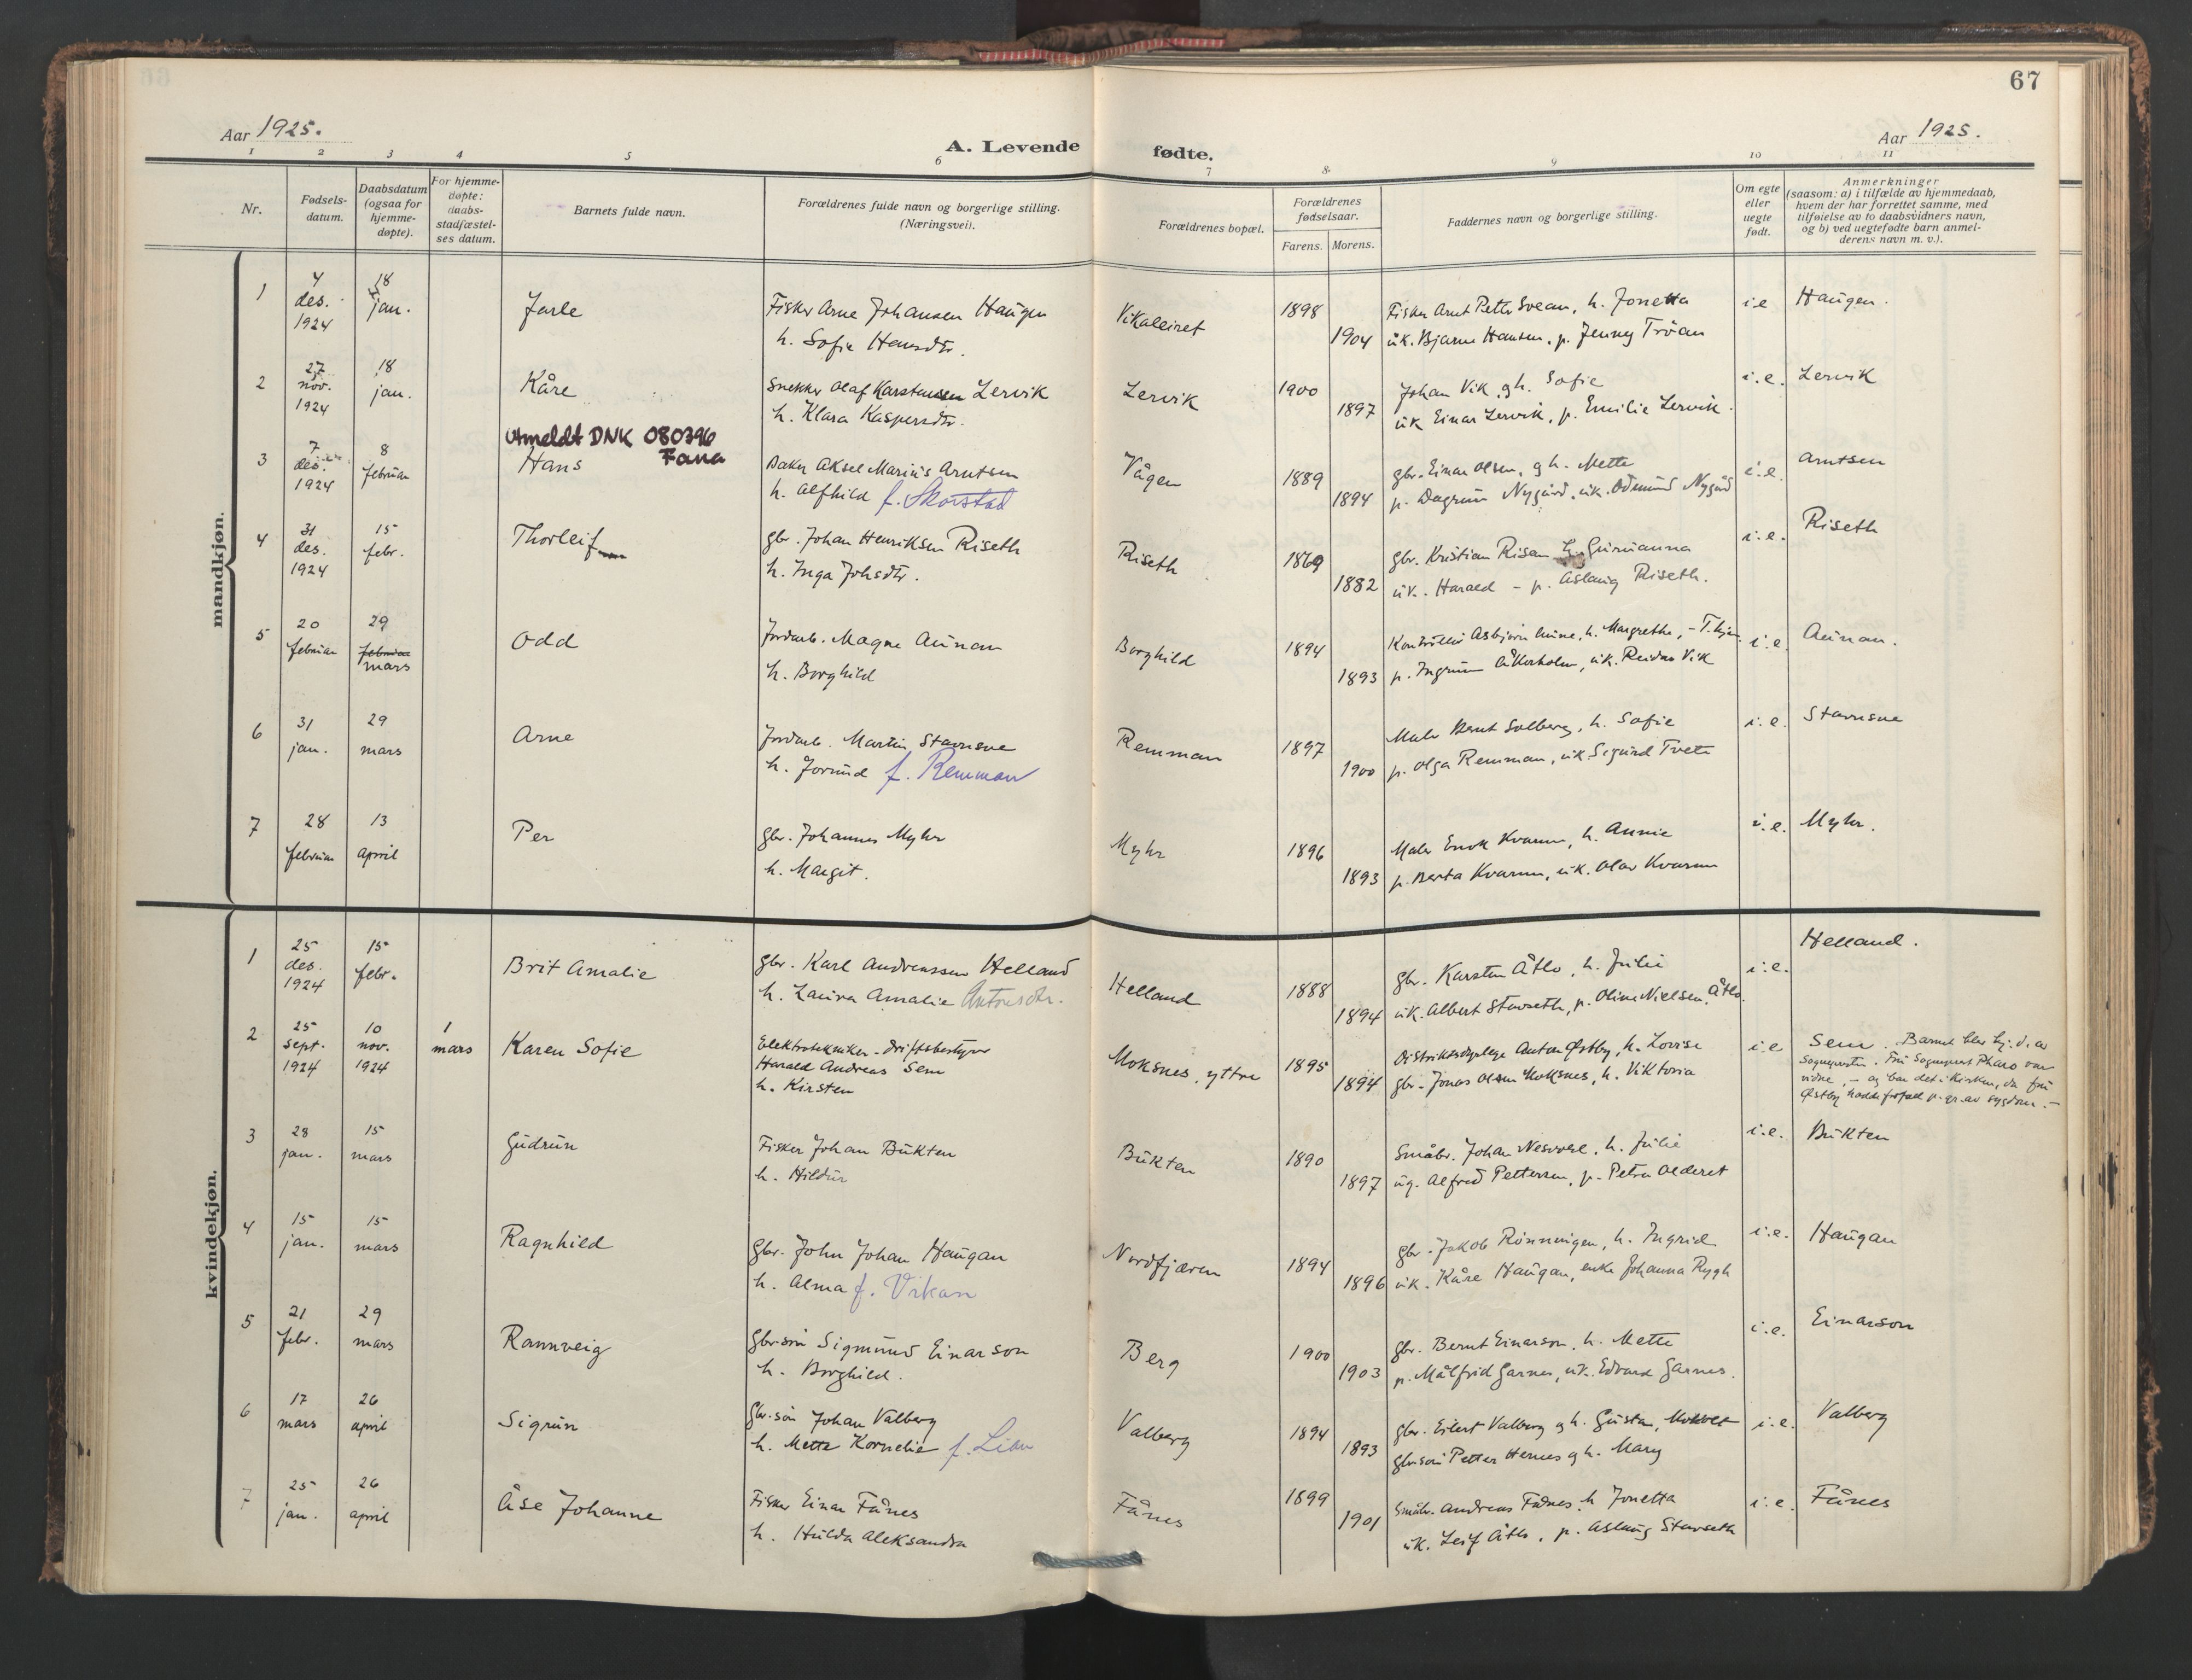 67
Aar 1925.
A. Levende fødte.
Aar 1925.
1 2 3 4 5 6 7 8 9 10 11
Nr.
Fødsels-
datum.
Daabsdatum
(ogsaa for
hjemme-
døpte).
For hjemme-
døpte:
daabs-
stadfæstel-
ses datum.
Barnets fulde navn.
Forældrenes fulde navn og borgerlige stilling.
(Næringsvei).
Forældrenes bopæl.
Forældrenes
fødselsaar.
Farens. Morens.
Faddernes navn og borgerlige stilling.
Om egte
eller
uegte
født.
Anmerkninger
(saasom: a) i tilfælde av hjemmedaab,
hvem der har forrettet samme, med
tilføielse av to daabsvidners navn,
og b) ved uegtefødte barn anmel-
derens navn m. v.).
mandkjøn.
1 4 des. 1924 18 jan. Jarle Fisker Arne Johansen Haugen Vikaleiret 1898 Fisker Arnt Petter Svean, h. Jonetta i.e Haugen.
h. Sofie Hansdtr. 1904 uk. Bjarne Hansen, p. Jenny Tröan
2 27 nov. 1924 18 jan. Kåre Snekker Olaf Karstensen Lervik Lervik 1900 Johan Vik, g h. Sofie i.e. Lervik
h. Klara Kaspersdtr. 1897 uk Einar Lervik, p. Emilie Lervik.
Utmeldt DNK 080396
Fana
3 7 des. 1924 8 februar Hans Baker Aksel Marius Arntsen Vågen 1889 gbr. Einar Olsen, g h. Mette i.e. Arntsen
h. Alfhild f. Skorstad 1894 p. Dagrun Nygård, uk. Odmund Nygård
4 31 des. 1924 15 febr. Thorleif gbr. Johan Henriksen Riseth Riseth 1869 gbr. Kristian Risan h. Gurianna i.e. Riseth
h. Inga Johsdtr. 1882 uk. Harald - p. Aslaug Riseth.
5 20 februar 29 februar mars Odd Jordarb. Magne Aunan Borghild 1894 Kontrollör Asbjörn Aune, h. Margrethe, - T.hjem. i.e. Aunan.
h. Borghild 1893 p. Ingrun Åkerholm, uk. Reidar Vik
6 31 jan. 29 mars Arne Jordarb. Martin Stavnsve Remman 1897 Maler Bernt Solberg, h. Sofie i.e. Stavnsve
h. Jorund f. Remman 1900 p. Olga Remman, uk. Sigurd Tvete
7 28 februar 13 april Per gbr. Johannes Myhr Myhr 1896 Maler Enok Kvamm, h. Annie i.e. Myhr.
h. Margit. 1893 p. Berta Kvamm, uk. Olav Kvamm
kvindekjøn.
1 25 des. 1924 15 febr. Brit Amalie gbr. Karl Andreassen Helland Helland 1888 gbr. Karsten Åtlo, h. Julie i.e. Helland.
h. Laura Amalie Antonsdtr. 1894 uk. Albert Stavseth, p. Oline Nielsen Åtlo.
2 25 sept. 1924 10 nov. 1924 1 mars Karen Sofie Elektrotekniker - driftsbestyrer Moksnes, yttre 1895 Distriktsdyrlege Anton Østby, h. Lovise i.e Sem. Barnet blev hj.d. av
Harald Andreas Sem 1894 gbr. Jonas Olsen Moksnes, h. Viktoria sogneprsten. Fru Sogneprest Pharo var
h. Kirsten vidne, - og bar det i kirken, da fru
Østby hadde forfall p. gr. av sygdom. -
3 28 jan. 15 mars Gudrun Fisker Johan Bukten Bukten 1890 Småbr. Johan Nesvoll, h. Julie i.e. Bukten
h. Hildur 1897 ug. Alfred Pettersen, p. Petra Olderet
4 15 jan. 15 mars Ragnhild Gbr. John Johan Haugan Nordfjæren 1894 gbr. Jakob Rönningen, h. Ingrid i.e. Haugan
h. Alma f. Vikan 1896 uk. Kåre Haugan, enke Johanna Rygh
5 21 febr. 29 mars Rannveig Gbr.sön Sigmund Einarson Berg 1900 gbr. Bernt Einarson, h. Mette i.e. Einarson
h. Borghild. 1903 p. Målfrid Garnes, uk. Edvard Garnes.
6 17 mars 26 april Sigrun Gbr.sön Johan Valberg Valberg 1894 gbr. Eilert Valberg g h. Gusta, i.e. Valberg
h. Mette Kornelie f. Lian 1893 gbr.sön Petter Hernes g h. Mary
7 25 jan. 26 april Åse Johanne Fisker Einar Fånes Fånes 1899 Småbr. Andreas Fånes, h Jonetta i.e. Fånes
h. Hulda Aleksandra 1901 uk. Leif Åtlo, p. Aslaug Stavseth